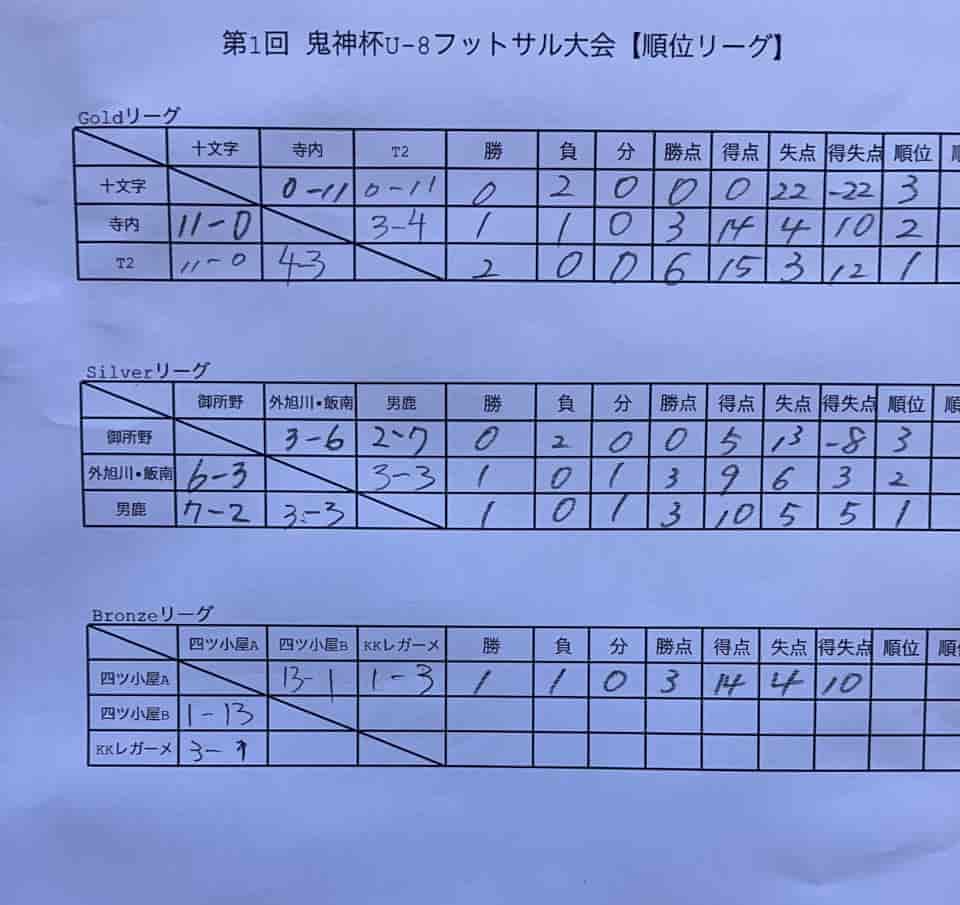 第1回 鬼神杯U-8フットサル大会【順位リーグ】
Goldリーグ
十文字 寺内 T2 勝 負 分 勝点 得点 失点 得失点 順位
十文字 0-11 0-11 0 2 0 0 0 22 -22 3
寺内 11-0 3-4 1 1 0 3 14 4 10 2
T2 11-0 4-3 2 0 0 6 15 3 12 1
Silverリーグ
御所野 外旭川・飯南 男鹿 勝 負 分 勝点 得点 失点 得失点 順位
御所野 3-6 2-7 0 2 0 0 5 13 -8 3
外旭川・飯南 6-3 3-3 1 0 1 3 9 6 3 2
男鹿 7-2 3-3 1 0 1 3 10 5 5 1
Bronzeリーグ
四ツ小屋A 四ツ小屋B KKレガーメ 勝 負 分 勝点 得点 失点 得失点 順位
四ツ小屋A 13-1 1-3 1 1 0 3 14 4 10
四ツ小屋B 1-13
KKレガーメ 3-1